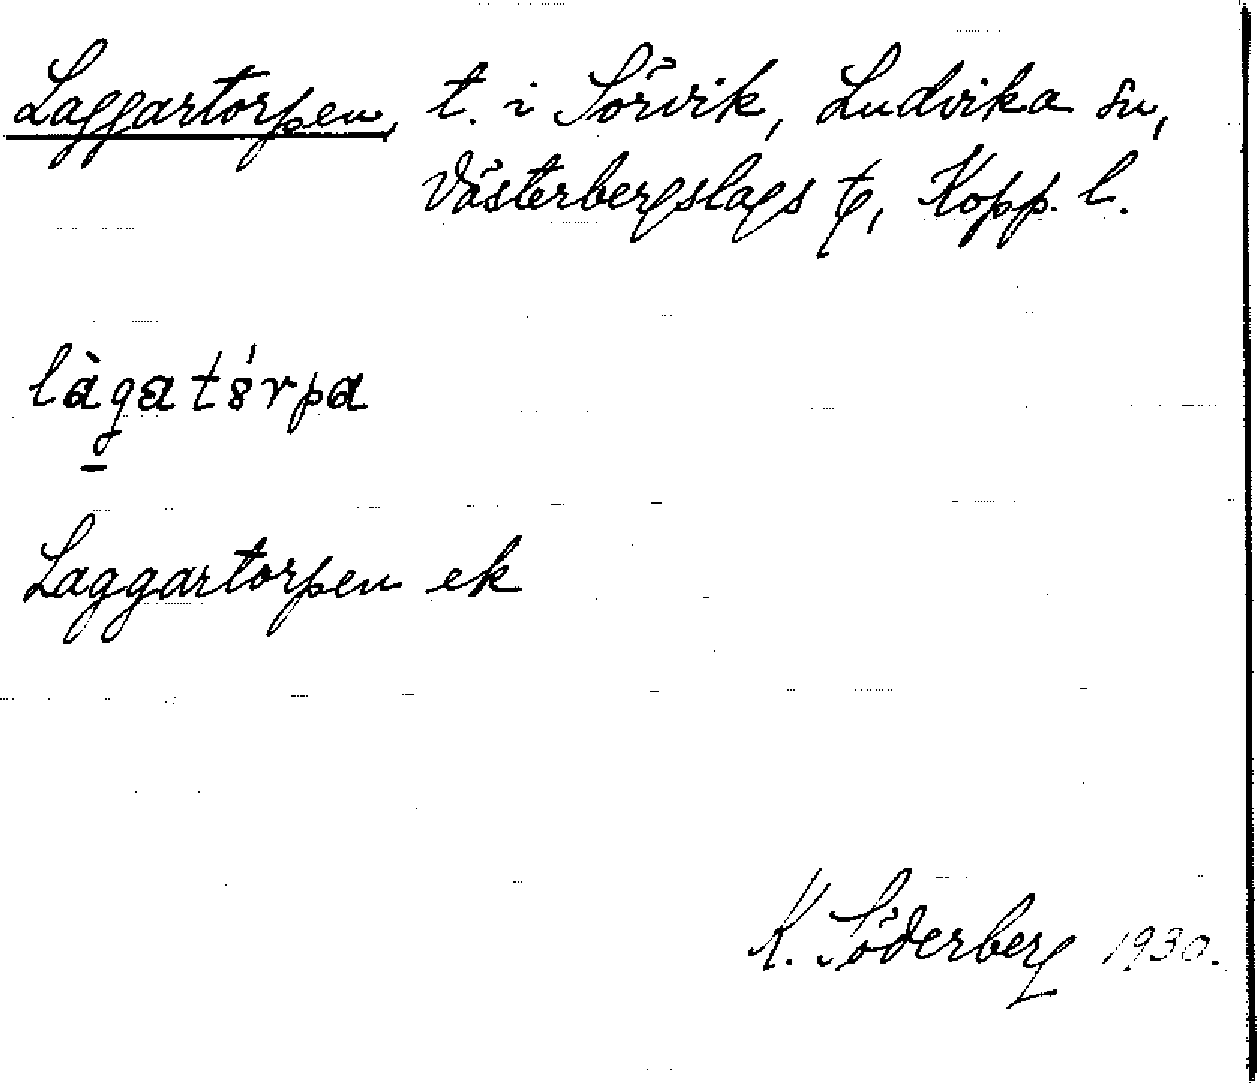 Laggartorpen, t. i Sörvik, Ludvika sn,
Västerbergslags tg, Kopp. l.
làgatórpa
Laggartorpen ek
K. Söderberg 1930.